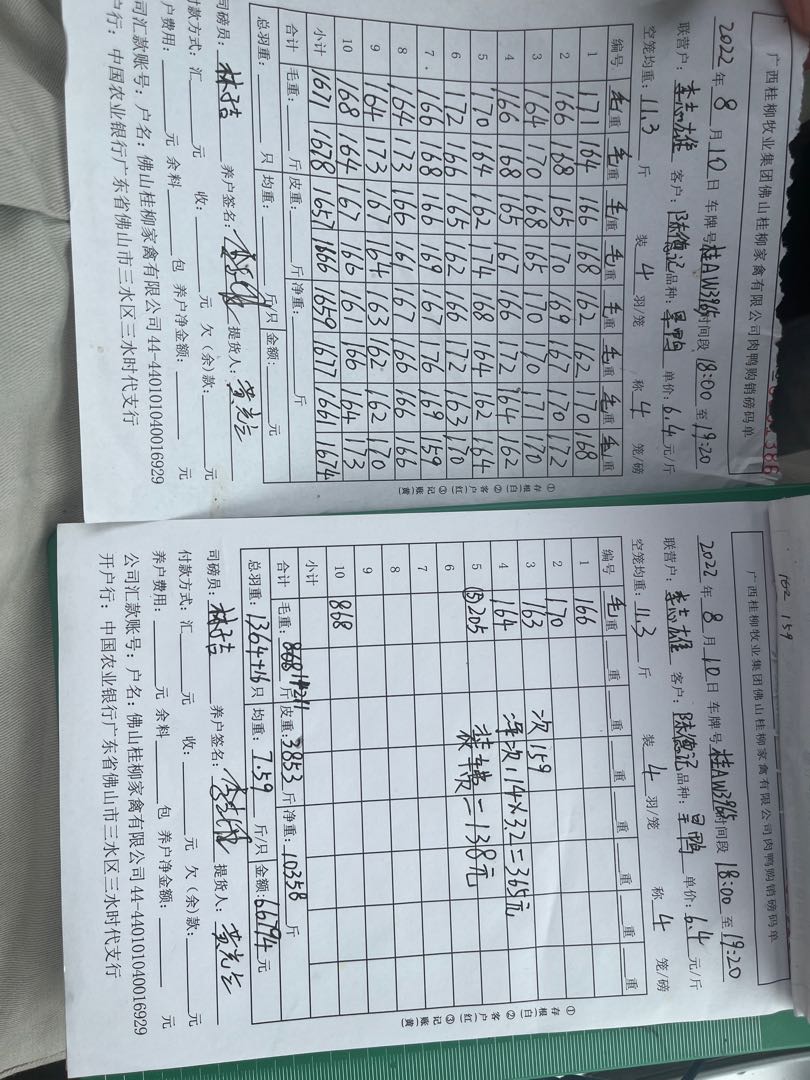 广西桂柳牧业集团佛山桂柳家禽有限公司肉鸭购销磅码单
2022 年 8 月 10 日 车牌号 桂AW3965 时间段 18:00 至 19:20
联营户: 李志雄 客户: 陈德记 品种: 单价: 6.4 元/斤
空笼均重: 11.3 斤 装 4 羽/笼 称 4 笼/磅
编号 毛重 毛重 毛重 毛重 毛重 毛重 毛重 毛重
1 171 164 166 168 162 162 170 168
2 166 168 165 170 169 167 170 172
3 164 170 168 165 170 170 171 170
4 166 168 165 167 166 172 164 162
5 170 164 162 174 168 164 162 164
6 172 166 165 162 166 172 163 170
7 166 168 166 169 167 176 169 159
8 164 173 166 161 167 166 166 166
9 164 173 167 164 163 162 162 170
10 168 164 167 166 161 166 164 173
小计 1671 1678 1657 1666 1659 1677 1661 1674
合计 毛重: 斤 皮重: 斤 净重: 斤
总羽重: 只 均重: 斤/只 金额: 元
司磅员: 养户签名: 提货人: 黄光兰
付款方式: 汇 元 收: 元 欠(余)款: 元
养户费用: 元 余料 包 养户净金额: 元
公司汇款账号: 户名: 佛山桂柳家禽有限公司 44-440101040016929
开户行: 中国农业银行广东省佛山市三水区三水时代支行
①存根(白) ②客户(红) ③记账(黄)
162 159
广西桂柳牧业集团佛山桂柳家禽有限公司肉鸭购销磅码单
2022 年 8 月 10 日 车牌号 桂AW3965 时间段 18:00 至 19:20
联营户: 李志雄 客户: 陈德记 品种: 单价: 6.4 元/斤
空笼均重: 11.3 斤 装 4 羽/笼 称 4 笼/磅
编号 毛重 重 重 重 重 重 重 重
1 166
2 170
3 163 次159
4 164 净次:14×3.2=365元
5 ⑤205 装费=138元
6
7
8
9
10 868
小计
合计 毛重: 868 14211 斤 皮重: 3853 斤 净重: 10358 斤
总羽重: 1364+16 只 均重: 7.59 斤/只 金额: 66794 元
司磅员: 养户签名: 提货人: 黄光兰
付款方式: 汇 元 收: 元 欠(余)款: 元
养户费用: 元 余料 包 养户净金额: 元
公司汇款账号: 户名: 佛山桂柳家禽有限公司 44-440101040016929
开户行: 中国农业银行广东省佛山市三水区三水时代支行
①存根(白) ②客户(红) ③记账(黄)